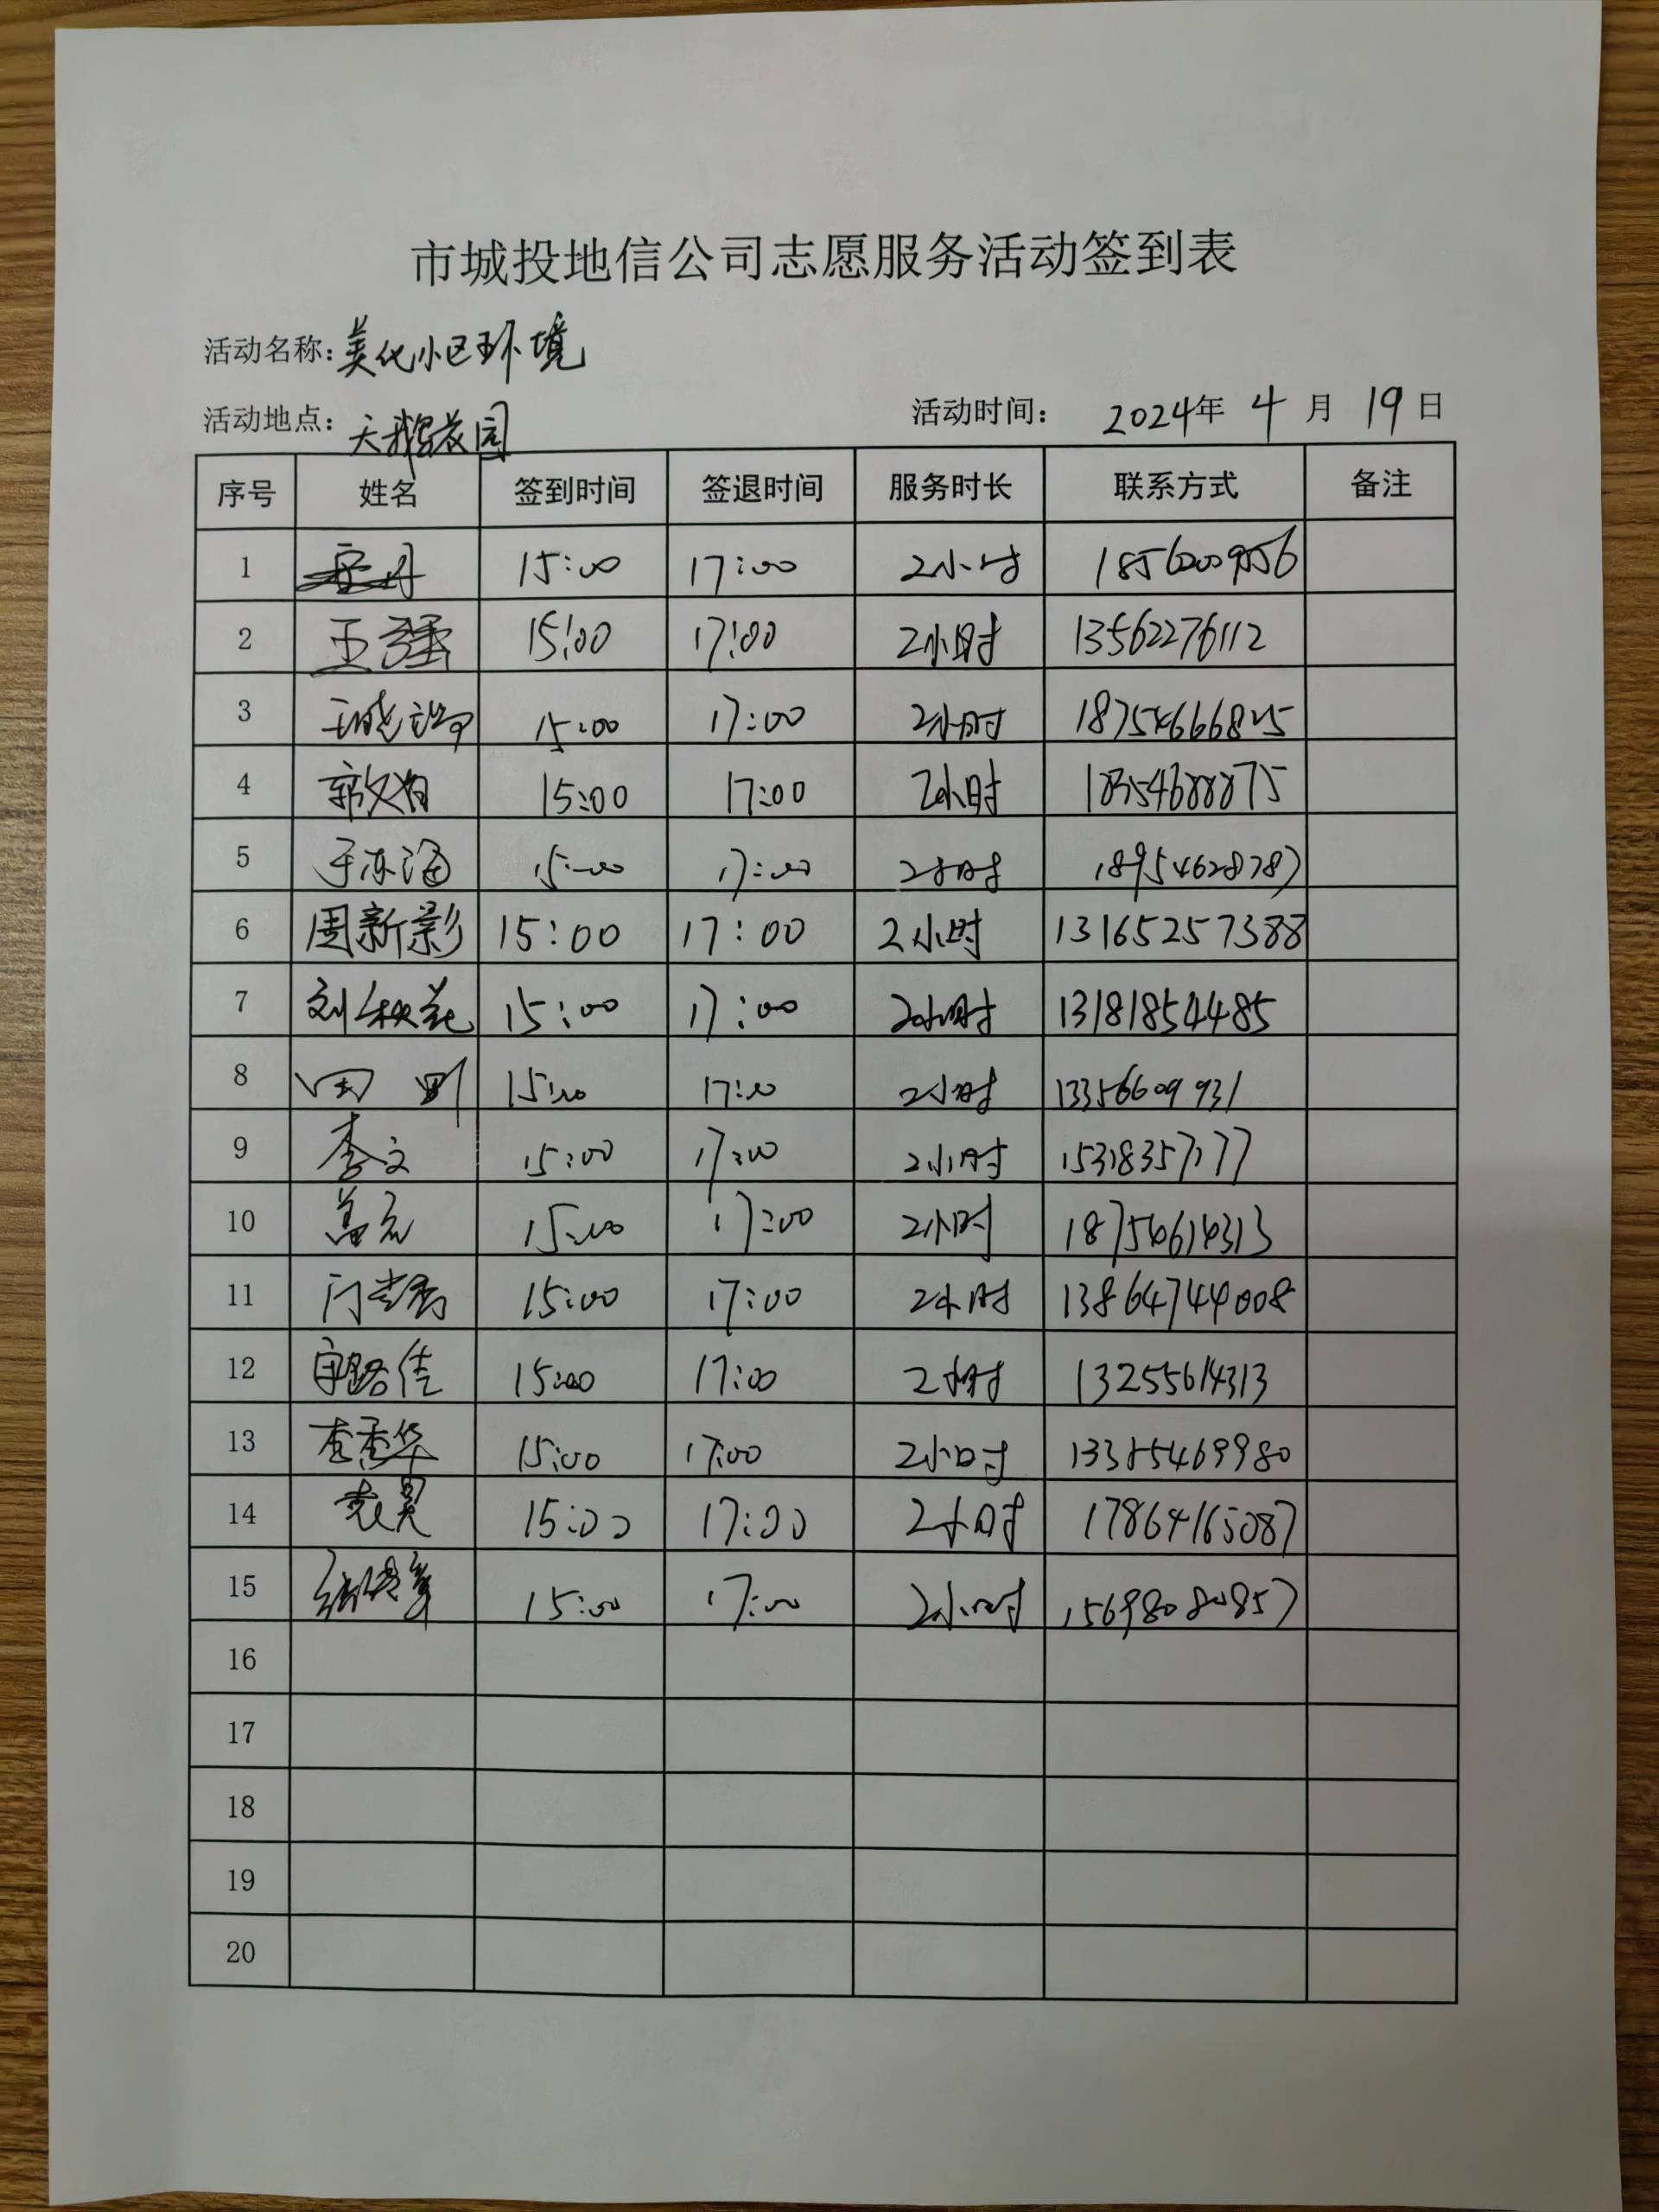 市城投地信公司志愿服务活动签到表
活动名称：美化小区环境
活动地点：天鹅花园 活动时间： 2024年 4 月 19 日
序号 姓名 签到时间 签退时间 服务时长 联系方式 备注
1 15:00 17:00 2小时
2 王强 15:00 17:00 2小时 13562276112
3 15:00 17:00 2小时 18754666825
4 15:00 17:00 2小时
5 于东海 15:00 17:00 2小时 18954628787
6 周新影 15:00 17:00 2小时 13165257388
7 刘秋花 15:00 17:00 2小时 13181854485
8 15:00 17:00 2小时 13356609931
9 李文 15:00 17:00 2小时 15318357177
10 15:00 17:00 2小时 18754614313
11 15:00 17:00 2小时 13864744008
12 15:00 17:00 2小时 13255614313
13 李香华 15:00 17:00 2小时 13385469980
14 袁昊 15:00 17:00 2小时 17864165087
15 15:00 17:00 2小时 15698080857
16
17
18
19
20